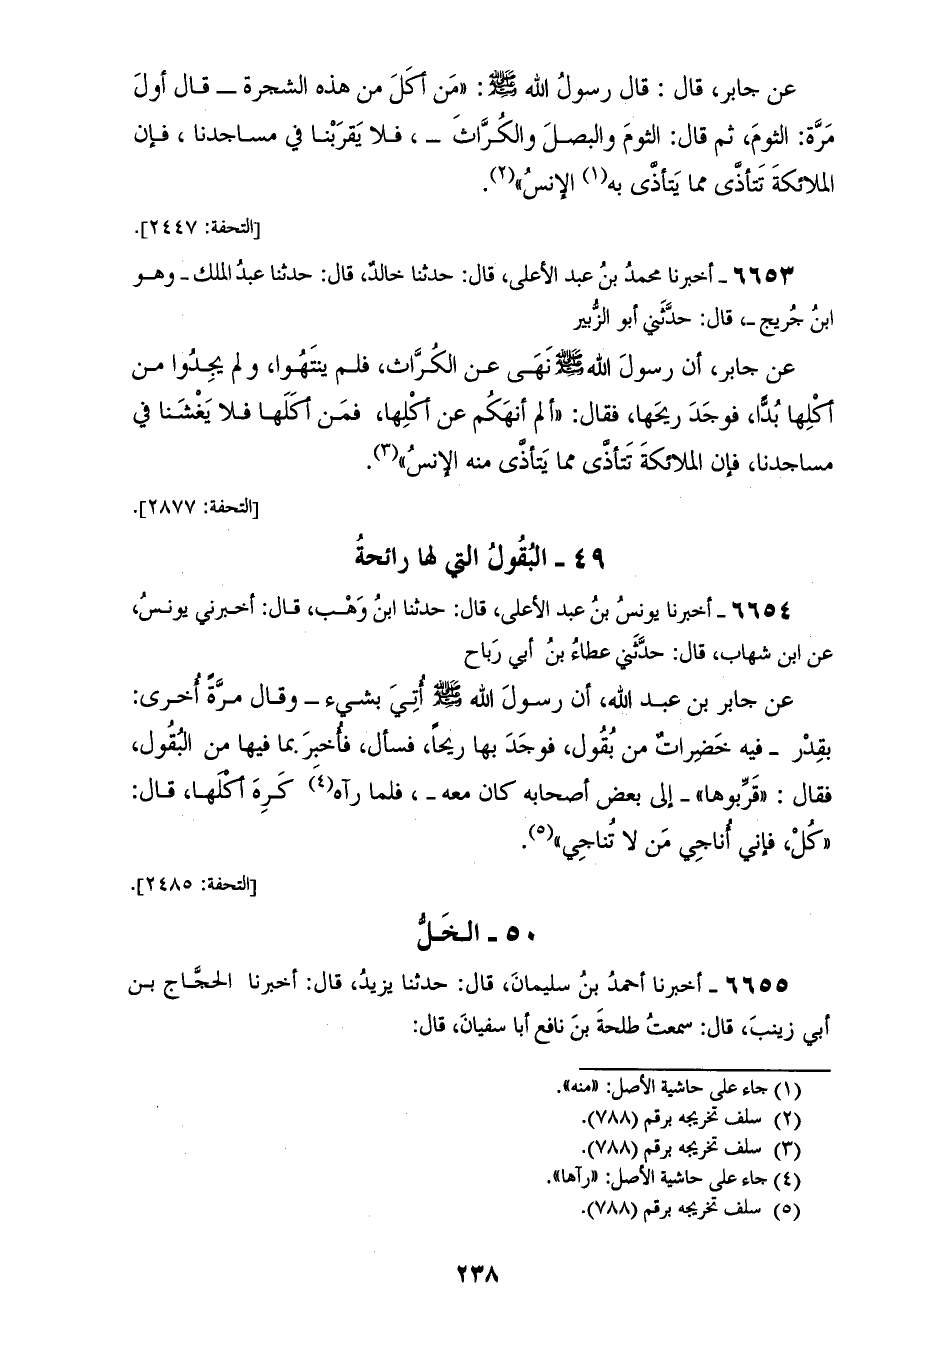 عن جابر، قال : قال رسولُ الله ﷺ: «مَن أكَلَ من هذه الشجرة ــ قـال أولَ
مَرَّة: الثومَ، ثم قال: الثومَ والبصـلَ والكُرَّاثَ ــ ، فـلا يَقرَبْنـا في مسـاجدنا ، فـإن
الملائكةَ تَتأذَّى مما يَتأذَّى به(١) الإنسُ»(٢).
[التحفة: ٢٤٤٧].
٦٦٥٣ ـ أخبرنا محمدُ بنُ عبد الأعلى، قال: حدثنا خالدٌ، قال: حدثنا عبدُ الملك ـ وهـو
ابنُ جُريج ـ، قال: حدَّثَني أبو الزُّبير
عن جابر، أن رسولَ الله ﷺ نَهَـى عـن الكُـرَّاث، فلـم ينتَهُـوا، و لم يجِـدُوا مـن
أكْلِها بُدًّا، فوجَدَ ريحَها، فقال: «ألم أنهَكُم عن أكْلِها، فمَـن أكَلَهـا فـلا يَغْشَـنا في
مساجدنا، فإن الملائكةَ تَتأذَّى مما يَتأذَّى منه الإنسُ»(٣).
[التحفة: ٢٨٧٧].
٤٩ ـ البُقُولُ التي لها رائحةُ
٦٦٥٤ ـ أخبرنا يونسُ بنُ عبد الأعلى، قال: حدثنا ابنُ وَهْـب، قـال: أخـبرني يونـسُ،
عن ابن شهاب، قال: حدَّثَني عطاءُ بنُ أبي رَباح
عن جابر بن عبـد الله، أن رسـولَ الله ﷺ أُتِـيَ بشيء ــ وقـال مـرَّةً أُخـرى:
بقِدْر ـ فيه خَضِراتٌ من بُقُول، فوجَدَ بها ريحاً، فسأل، فأُخبِرَ بما فيها من البُقُول،
فقال : «قَرِّبوها» ـ إلى بعض أصحابه كان معه ـ ، فلما رآه(٤) كَـرِهَ أكْلَهـا، قـال:
«كُلْ، فإني أُناجي مَن لا تُناجي»(٥).
[التحفة: ٢٤٨٥].
٥٠ ـ الـخَـلُّ
٦٦٥٥ ـ أخبرنا أحمدُ بنُ سليمانَ، قال: حدثنا يزيدُ، قال: أخبرنا الحجَّاج بـن
أبي زينبَ، قال: سمعتُ طلحةَ بنَ نافع أبا سفيانَ، قال:
(١) جاء على حاشية الأصل: «منه».
(٢) سلف تخريجه برقم (٧٨٨).
(٣) سلف تخريجه برقم (٧٨٨).
(٤) جاء على حاشية الأصل: «رآها».
(٥) سلف تخريجه برقم (٧٨٨).
٢٣٨